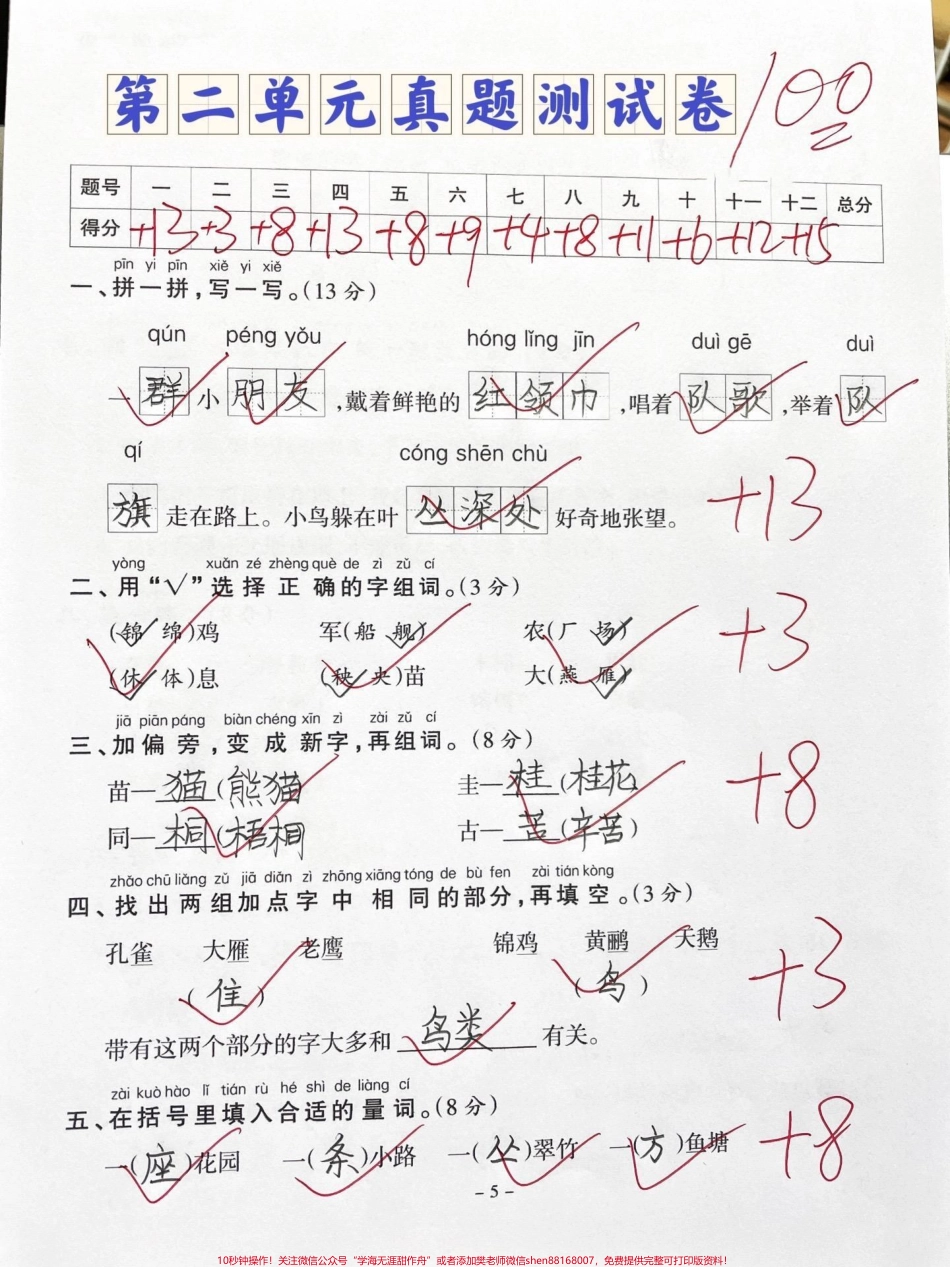 第二单元真题测试卷 100
题号 一 二 三 四 五 六 七 八 九 十 十一 十二 总分
得分 +13 +3 +8 +13 +8 +9 +4 +8 +11 +6 +12 +15
pīn yi pīn xiě yi xiě
一、拼一拼，写一写。(13分)
qún péng yǒu hóng lǐng jīn duì gē duì
一群小朋友，戴着鲜艳的红领巾，唱着队歌，举着队
qí cóng shēn chù
旗走在路上。小鸟躲在叶丛深处好奇地张望。 +13
yòng xuǎn zé zhèng què de zì zǔ cí
二、用“√”选择正确的字组词。(3分)
(锦√ 绵)鸡 军(船 舰√) 农(厂 场√) +3
(休√ 体)息 (秧√ 央)苗 大(燕 雁√)
jiā piān páng biàn chéng xīn zì zài zǔ cí
三、加偏旁，变成新字，再组词。(8分)
苗—猫(熊猫) 圭—桂(桂花) +8
同—桐(梧桐) 古—苦(辛苦)
zhǎo chū liǎng zǔ jiā diǎn zì zhōng xiāng tóng de bù fen zài tián kòng
四、找出两组加点字中相同的部分，再填空。(3分)
孔雀 大雁 老鹰 锦鸡 黄鹂 天鹅
(隹) (鸟) +3
带有这两个部分的字大多和鸟类有关。
zài kuò hào lǐ tián rù hé shì de liàng cí
五、在括号里填入合适的量词。(8分)
一(座)花园 一(条)小路 一(丛)翠竹 一(方)鱼塘 +8
- 5 -
10秒钟操作！关注微信公众号“学海无涯甜作舟”或者添加樊老师微信shen88168007，免费提供完整可打印版资料！